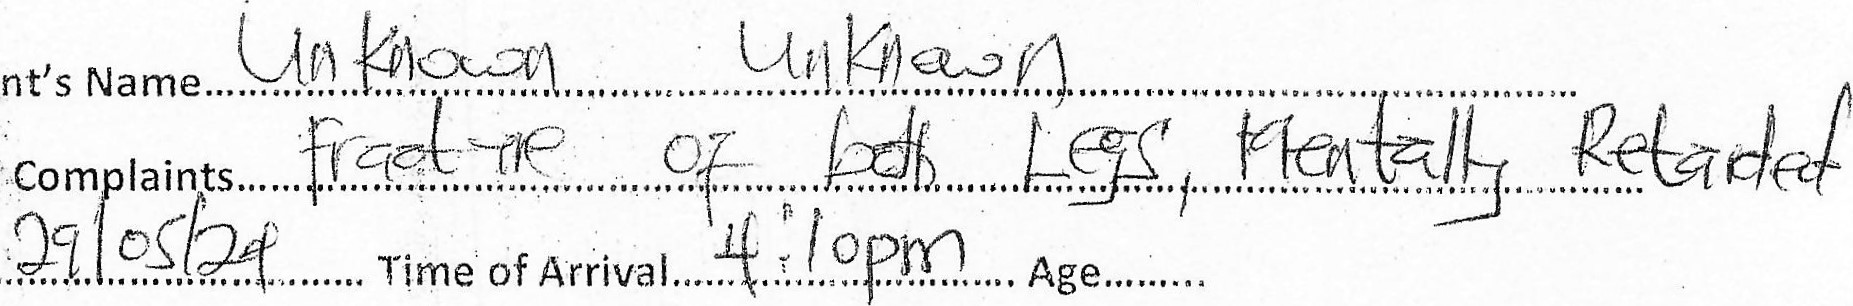 nt's Name.....Unknown Unknown.....
Complaints.....Fracture of both Legs, Mentally Retarded
29/05/24..... Time of Arrival.....4:10pm..... Age.....